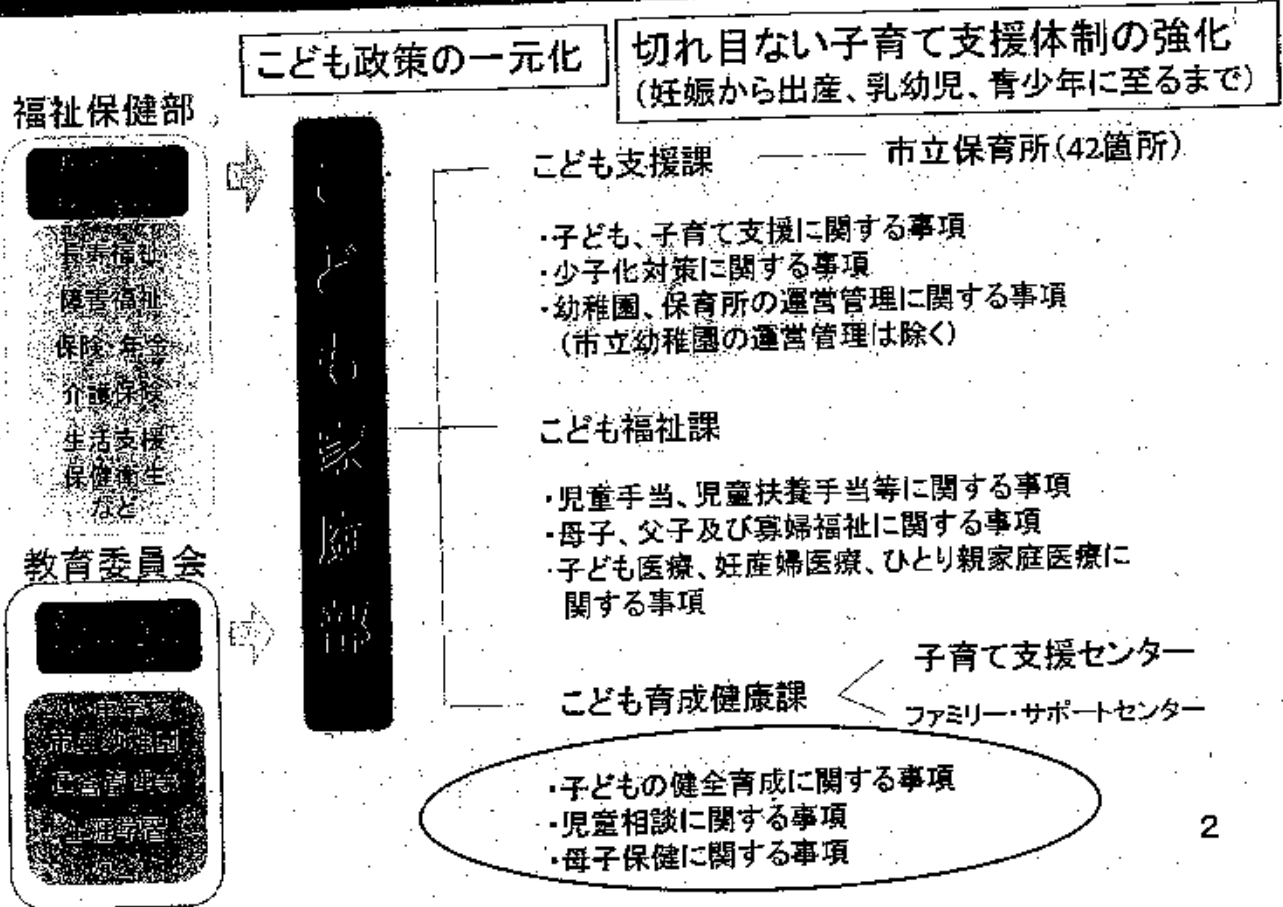 こども政策の一元化
切れ目ない子育て支援体制の強化
(妊娠から出産、乳幼児、青少年に至るまで)
福祉保健部
長寿福祉
障害福祉
保険・年金
介護保険
生活支援
保健衛生
など
教育委員会
こども家庭部
こども支援課
市立保育所(42箇所)
・子ども、子育て支援に関する事項
・少子化対策に関する事項
・幼稚園、保育所の運営管理に関する事項
(市立幼稚園の運営管理は除く)
こども福祉課
・児童手当、児童扶養手当等に関する事項
・母子、父子及び寡婦福祉に関する事項
・子ども医療、妊産婦医療、ひとり親家庭医療に
関する事項
こども育成健康課
子育て支援センター
ファミリー・サポートセンター
・子どもの健全育成に関する事項
・児童相談に関する事項
・母子保健に関する事項
2